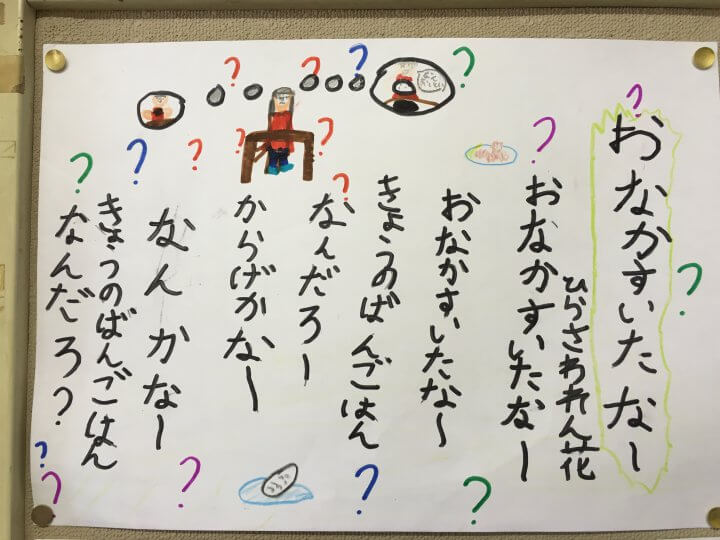 おなかすいたなー
ひらさわれん花
おなかすいたなー
おなかすいたな〜
きょうのばんごはん
なんだろー
からげかなー
なんかなー
きょうのばんごはん
なんだろ?